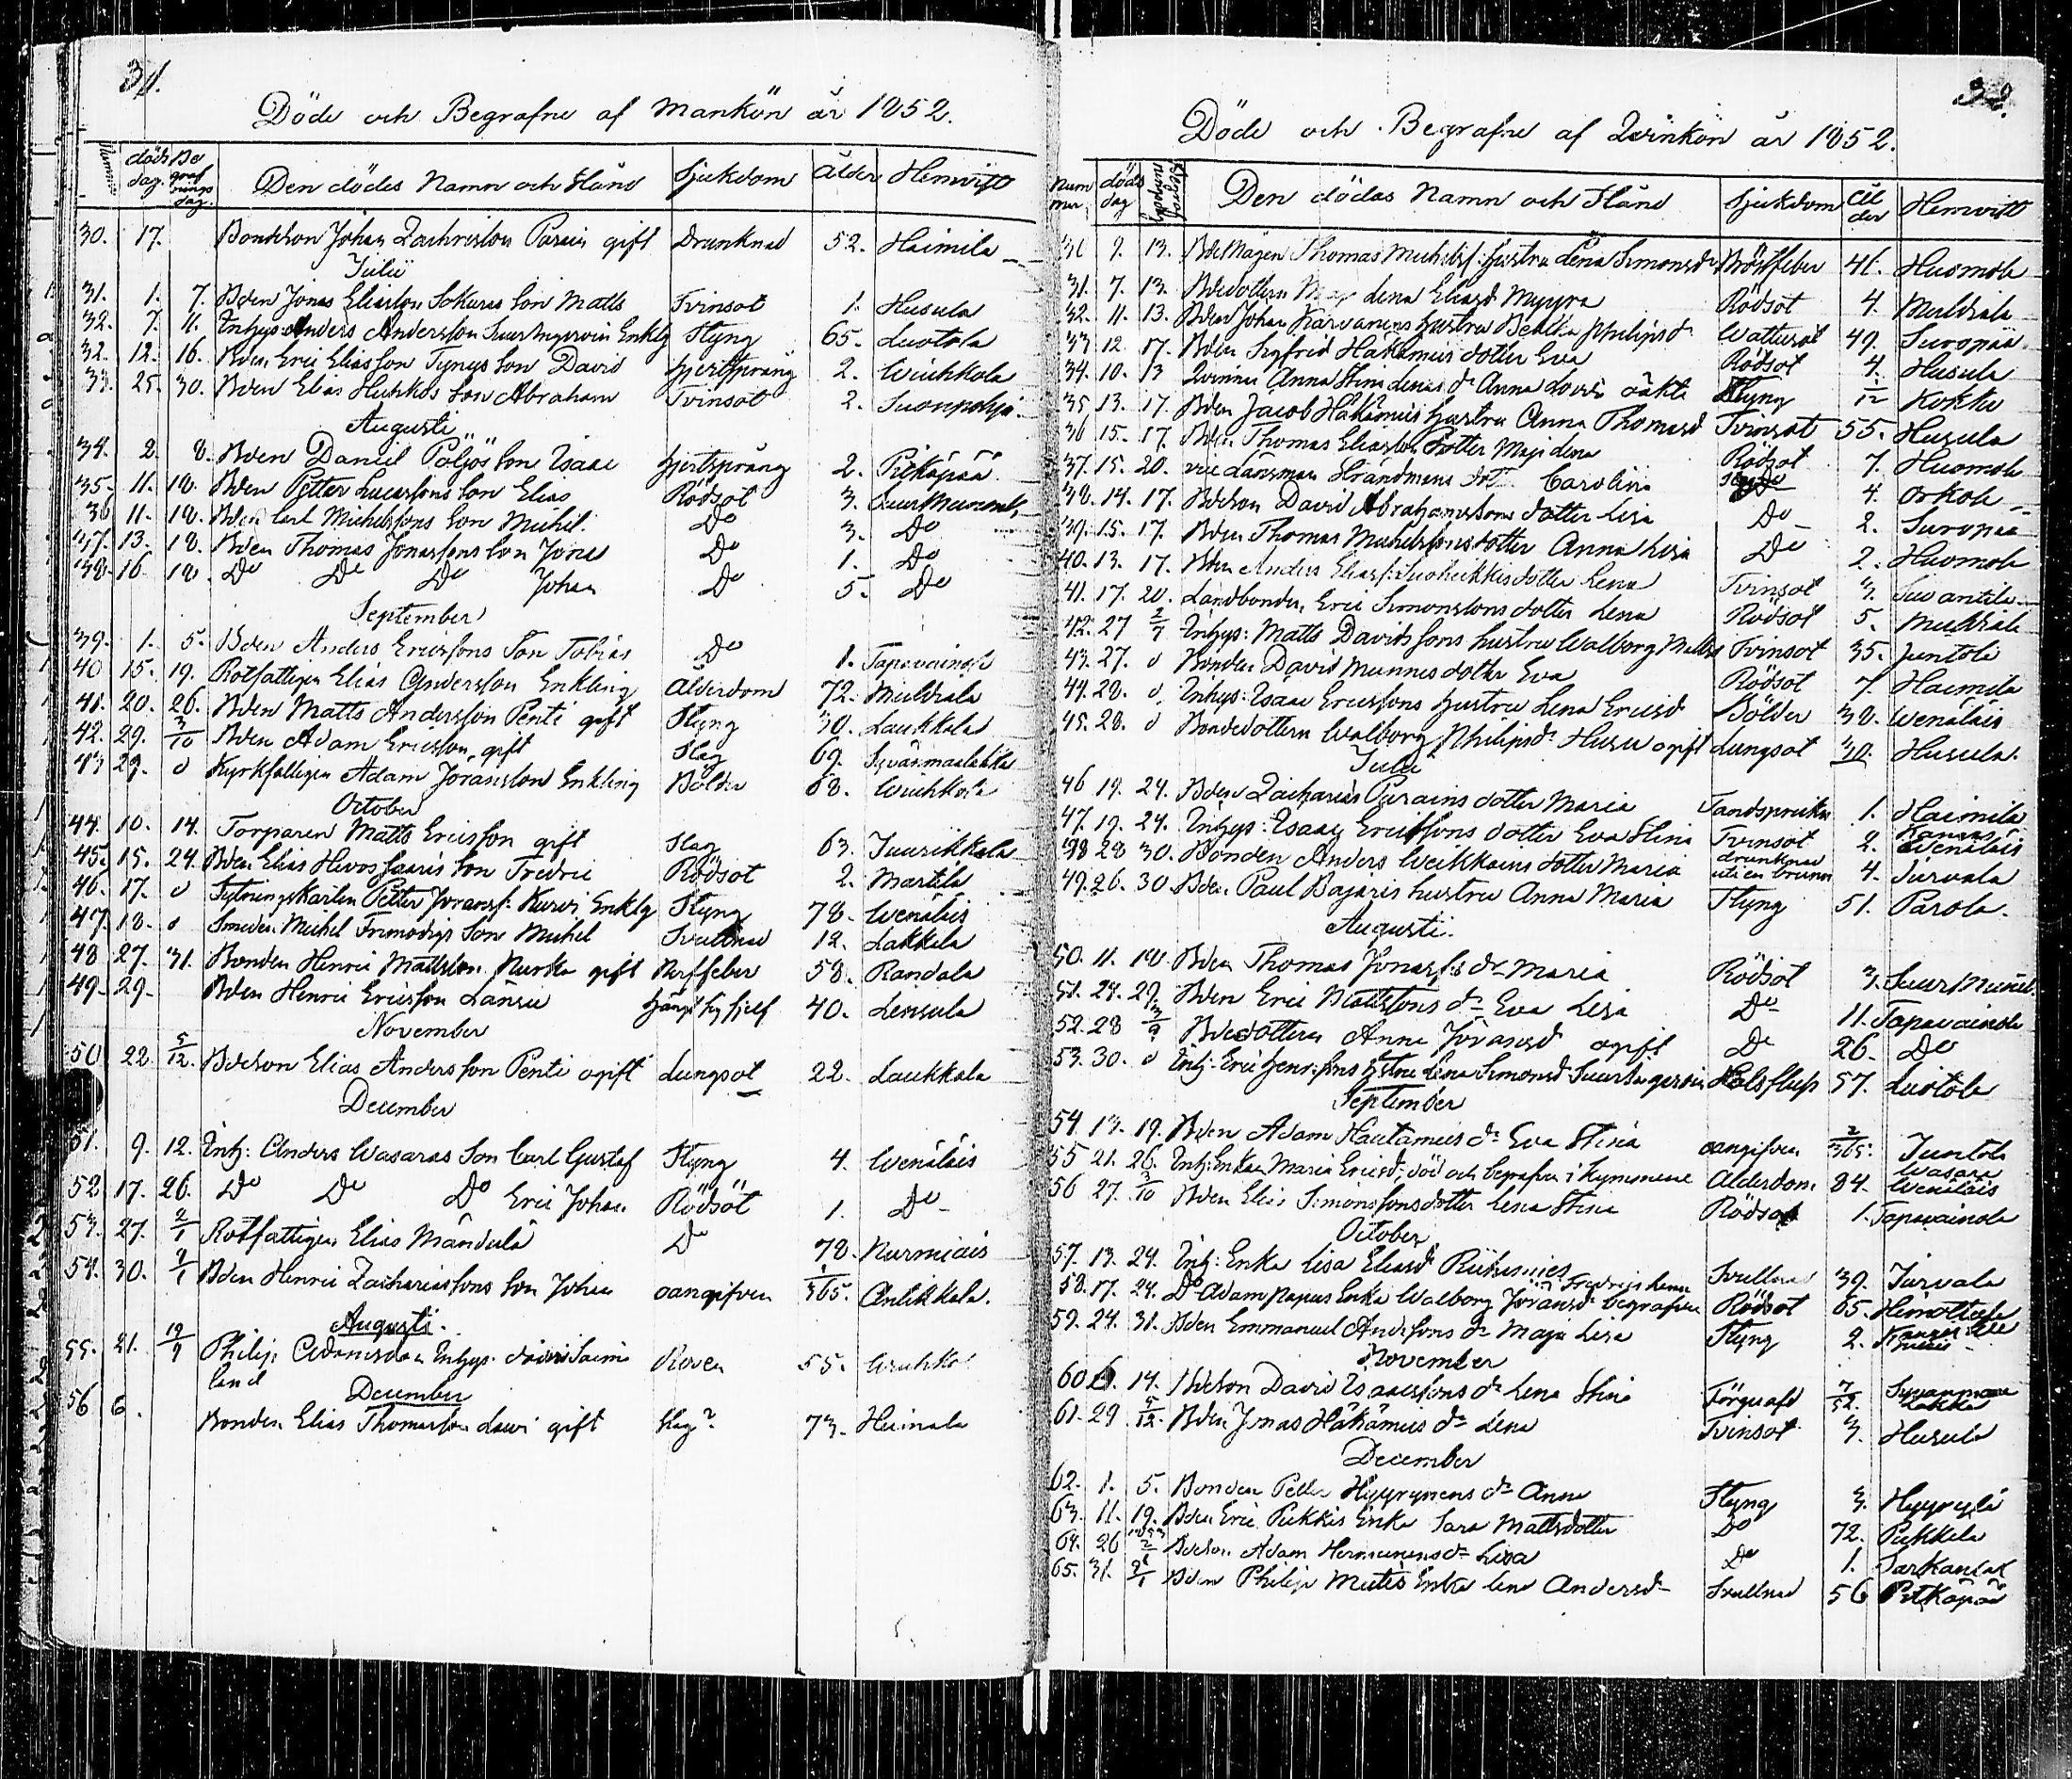 31.
Döde och Begrafne af Mankön år 1852.
Nummer döds dag. Be graf nings dag. Den dödes Namn och Stånd Sjukdom Ålder Hemvist
30. 17. Bondeson Johan Zachrisson Parain gift Drunknad 52. Haimila
Julii
31. 1. 7. Bden Jonas Eliasson Sokuras Son Matts Tvinsot 1. Husula
32. 7. 11. Inhys Anders Andersson Enklg Styng 65. Luotola
32. 12. 16. Bden Eric Eliasson Tynys Son David Hjertsprång 2. Wiuhkola
33. 25. 30. Bden Elias Huhkos Son Abraham Tvinsot 2. Suonpohja
Augusti
34. 2. 8. Bden Daniel Pöljös Son Isaac Hjertsprång 2. Pitkäpää
35. 11. 18. Bden Petter Lucassons Son Elias Rödsot 3.
36 11. 18. Bden Carl Michelssons Son Michel. Do 3. Do
37. 13. 18. Bden Thomas Jonassons Son Jonas Do 1. Do
38. 16 18. Do Do Do Johan Do 5. Do
September
39. 1. 5. Bden Anders Ericssons Son Tobias Do 1. Tapavainola
40 15. 19. Rotfattigen Elias Andersson Enkling Ålderdom 72. Muldiala
41. 20. 26. Bden Matts Andersson Penti gift Styng 30. Laukkala
42. 29. 3/10 Bden Adam Ericsson gift Slag 69.
43 29. d Kyrkfattigen Adam Jöransson Enkling Bölder 68. Wiuhkola
October
44. 10. 14. Torparen Matts Ericsson gift Slag 63. Juurikkala
45. 15. 24. Bden Elias Hevossaaris Son Fredric Rödsot 2. Martila
46. 17. d Petter Joransf. Kurvi Enklg Styng 78. Wenäläis
47. 18. d Smeden Michel Frimodigs Son Michel Svullnad 12. Lakkala
48 27. 31. Bonden Henric Mattsson Nurka gift Nerffeber 58. Randala
49. 29. Bden Henric Ericsson Länsie hängt sig sjelf 40. Lensula
November
50 22. 5/12. Bdeson Elias Andersson Penti ogift Lungsot 22. Laukkala
December
51. 9. 12. Inh: Anders Wasaras Son Carl Gustaf Styng 4. Wenäläis
52 17. 26. Do Do Do Eric Johan Rödsot 1. Do
53. 27. 2/1 Rotfattigen Elias Mändulä Do 78. Nurmiais
54. 30. 2/1 Bden Henric Zachariassons Son Johan oangifven 1/365. Anlikkala.
Augusti.
55. 21. 19/9 Philip Adamsson Inhys. land Rosen 55.
December
56 6. Bonden Elias Thomasson Lawi gift Slag? 73. Heinala
32.
Döde och Begrafne af Qvinkön år 1852.
Num mer döds dag Den dödas Namn och Stånd Sjukdom Ål der Hemvist
30 9. 13. Bdemågen Thomas Michelss: hustru Lena Simonsdr Bröstfeber 41. Huomola
31. 7. 13. Bdedottern Maja Lena Eliasd Myyrä Rödsot 4. Muldiala
32. 11. 13. Bden Johan Karvanens hustru Beatha Philipsdr Wattusot 49. Suropää
33 12. 17. Bden Sigfrid Häkämies dotter Eva Rödsot 4. Husula
34. 10. 13 Qvinnan Anna Stina Lenas dr Anna Lovis oäkta Styng 1/12 Kokko
35 13. 17. Bden Jacob Häkämies hustru Anna Thomasd Tvinsot 55. Husula
36 15. 17. Bden Thomas Eliassons dotter Maja Lena Rödsot 7. Huomola
37. 15. 20. vice Länsman Strandmans dotter Carolina 4. Orkola
38. 14. 17. Bdeson David Abrahamssons dotter Lisa Do 2. Suropää
39. 15. 17. Bden Thomas Michelssons dotter Anna Lisa Do 2. Huomola
40. 13. 17. Bden Anders Eliass: dotter Lena Tvinsot 3.
41. 17. 20. Landbonden Eric Simonssons dotter Lena Rödsot 5. Muldiala
42. 27 2/7 Inhys: Matts Davidssons hustru Walborg Mattsd Tvinsot 35. Juntola
43. 27. d Bonden David Munnes dotter Eva Rödsot 7. Haimila
44. 28. d Inhys: Isaac Ericssons hustru Lena Ericsd Bölder 38. Wenäläis
45. 28. d Bondedottern Walborg Philipsdr Husu ogift Lungsot 30. Husula.
Julii
46 19. 24. Bden Zacharias Parains dotter Maria Tandsprickn 1. Haimila
47. 19. 24. Inhys: Isaac Ericssons dotter Eva Stina Tvinsot 2. Wenäläis
48 28 30. Bonden Anders Weikkains dotter Maria drunknad uti en brunn 4. Järvala
49. 26. 30. Bden Paul Bajaris hustru Anna Maria Styng 51. Parola.
Augusti.
50. 11. 18. Bden Thomas Jonass: dr Maria Rödsot 3.
51. 24. 29. Bden Eric Mattssons dr Eva Lisa Do 11. Tapavainola
52. 28 3/9 Bdedottern Anna Jöransd ogift Do 26. Do
53. 30. d Inh: Eric Henrissons hstru Lena Simonsd 57. Luotola
September
54. 13. 19. Bden Adam Hautamies dr Eva Stina oangifven 2/365. Juntola
55 21. 26. Inh: Enkan Maria Ericsd: död och begrafven i Kymmene Ålderdom 84. Wasara Wenäläis
56 27. 3/10 Bden Elias Simonssons dotter Lena Stina Rödsot 1. Tapavainola
October
57. 13. 24. Inh: Enka Lisa Eliasd Riihimies Svullnad 39. Järvala
58. 17. 24. Do Adam Papus Enka Walborg Jöransd: begrafven i Fredrijshamn Rödsot 65.
59. 24. 31. Bden Emmanuel Anderssons dr Maja Lisa Styng 2.
November
60 6. 14. Bdeson David Isaacssons dr Lena Stina Förqvafd 7/52.
61. 29 5/12. Bden Jonas Häkämies dr Lena Tvinsot 3. Husula
December
62. 1. 5. Bonden Petter Hyyrynens dr Anna Styng 3. Hyyrylä
63. 11. 19. Bden Eric Pukkis Enka Sara Mattsdotter Do 72. Pukkila
64. 26 1853 2/1 Bdeson Adam Hermunens dr Lisa Do 1.
65. 31. 2/1 Bden Philip Mutis Enka Lena Andersd Svullnad 56 Pitkäpää